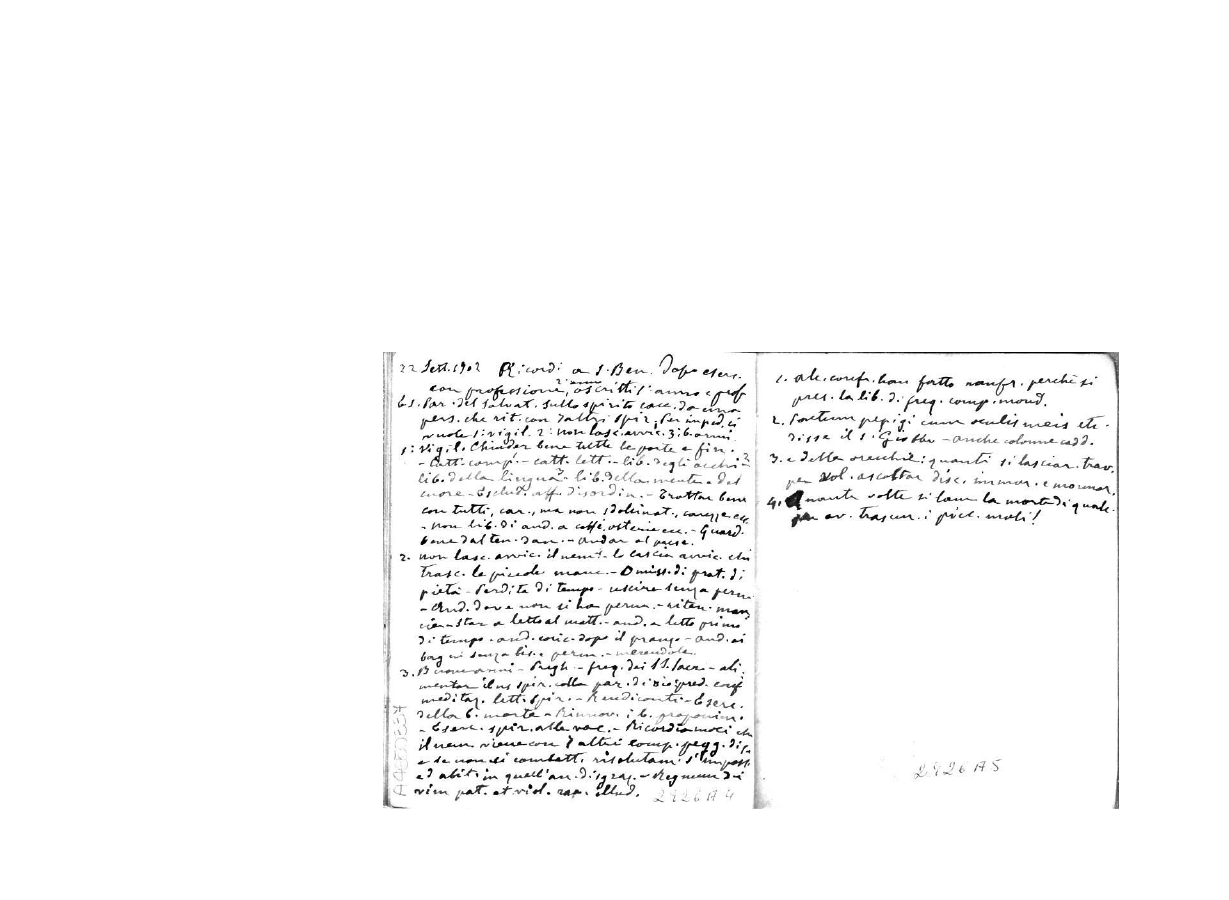 22 Sett. 1902 Ricordi a S. Ben. Dopo eserc.
2° anno
con professione, ascritti 1° anno e prof
6 S. Par. del Salvat. sullo spirito cacc. da una
pers. che rit. con 7 altri spir. Per imped. ci
vuole 1: vigil. 2: non lasc. avvic. 3: b. armi
1: Vigil. Chiuder bene tutte le porte e fin.
- Catt. comp. - catt. lett. - lib. degli occhi -
lib. della lingua - lib. della mente e del
cuore - Esclud. aff. disordin. - Trattar bene
con tutti, car., ma non sdolcinat., carezze ecc.
- non lib. di and. a caffè, osterie ecc. - Guard.
bene dal ten. dan. - andar al paese.
2. non lasc. avvic. il nem. - lo lascia avvic. chi
trasc. le piccole manc. - Omiss. di prat. di
pietà - Perdita di tempo - uscire senza perm
- And. dove non si ha perm. - riten. man
cie - star a letto al matt. - and. a letto primo
di tempo - and. coric. dopo il pranzo - and. ai
senza bis. e perm. - merendole.
3. Buone armi - Pregh. - freq. dei SS. Sacr. - ali
mentar il ns spir. colla par. di Dio: pred. conf
meditaz. lett. spir. - Rendiconti - Eserc.
della b. morte - Rinnov. i b. proponim.
- Eserc. spir. alle vac. - Ricordiamoci che
il nem. viene con 7 altri comp. pegg. di se
e se non ci combatt. risolutam. s'imposs.
ed abit. in quell'an. disgraz. - Regnum Dei
vim pat. et viol. rap. illud.
2926 A 4
1. alc. confr. han fatto naufr. perchè si
pres. la lib. di freq. comp. mond.
2. Foetum pepigi cum oculis meis etc.
disse il S. Giobbe - anche colonne cadd.
3. e della orecchie: quanti si lasciar. trav.
per vol. ascoltar disc. immor. e mormor.
4. Quante volte si lam. la morte di qualc.
per av. trascur. i picc. mali!
2926 A 5